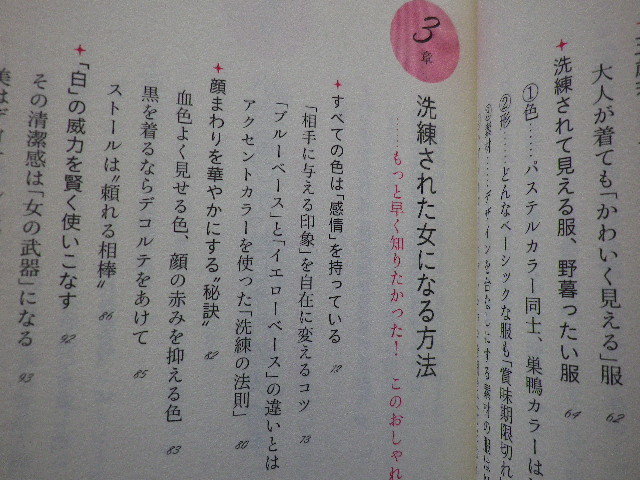 大人が着ても「かわいく見える」服 62
洗練されて見える服、野暮ったい服 64
①色……パステルカラー同士、巣鴨カラーは
②形……どんなベーシックな服も「賞味期限切れ
3章 洗練された女になる方法
……もっと早く知りたかった! このおしゃれ
すべての色は「感情」を持っている 72
「相手に与える印象」を自在に変えるコツ 73
「ブルーベース」と「イエローベース」の違いとは
アクセントカラーを使った「洗練の法則」 80
顔まわりを華やかにする“秘訣” 82
血色よく見せる色、顔の赤みを抑える色 83
黒を着るならデコルテをあけて 85
ストールは“頼れる相棒” 86
「白」の威力を賢く使いこなす 92
その清潔感は「女の武器」になる 93